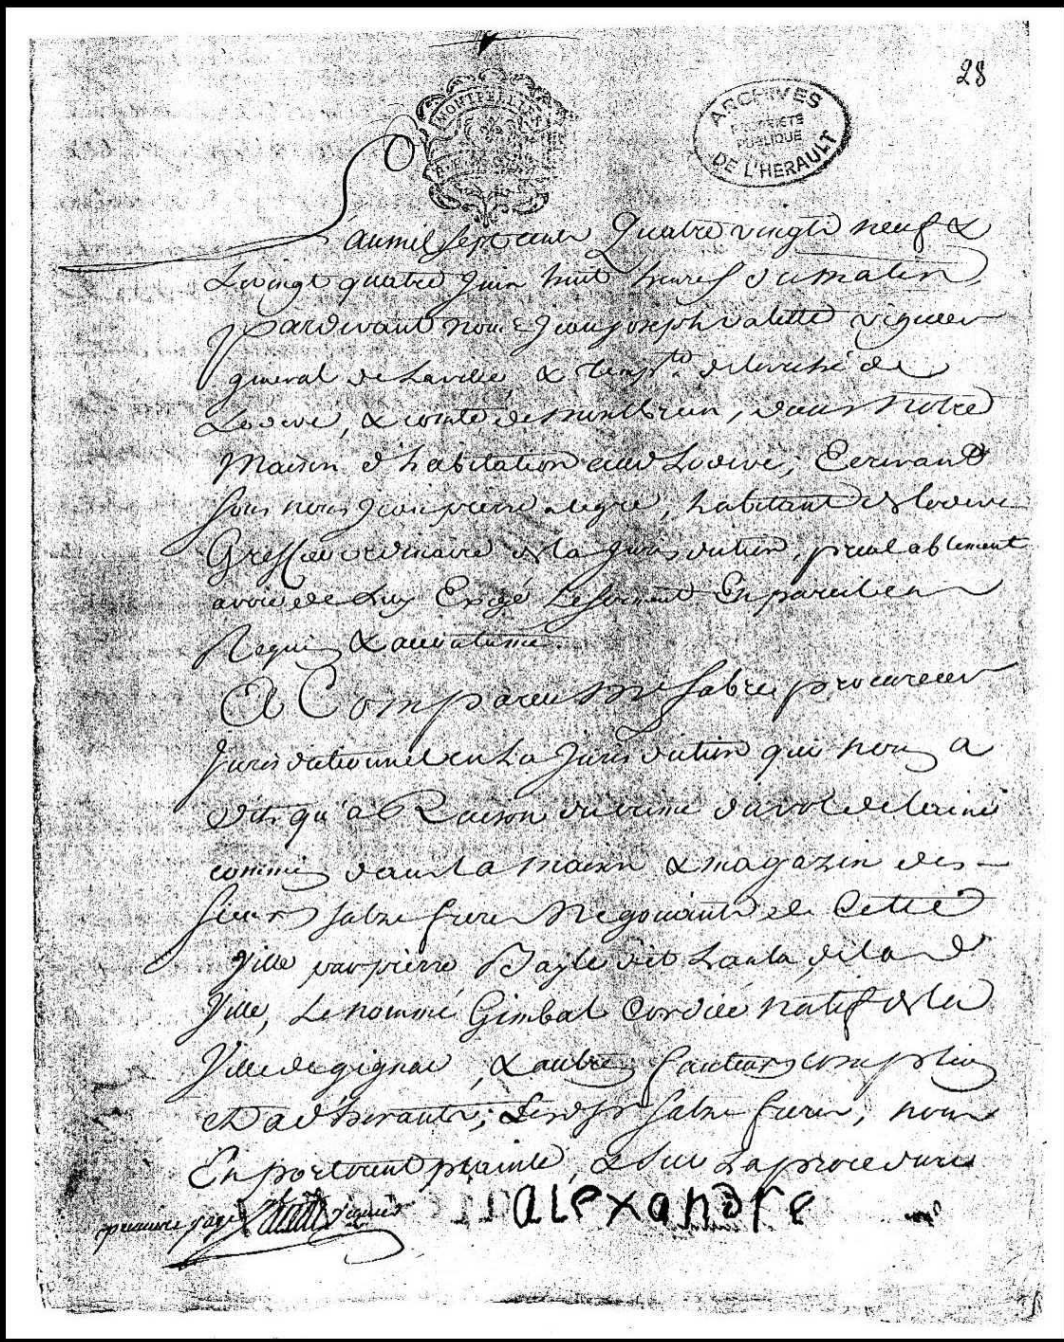 28
MONTPELLIER
ARCHIVES
PROPRIETE
PUBLIQUE
DE L'HERAULT
L'an mil sept cents Quatre vingts neuf &
Le vingt quatre Juin huit heures du matin,
Pardevant nous Jean joseph valette viguier
general de La ville, & temp.lté de levêché de
Lodeve, & comté de montbrun, dans Notre
Maison d'habitation aud Lodeve, Ecrivant
sous nous Jean pierre Legre, habitant de lodeve
Greffier ordinaire de la Jurisdiction, prealablement
avoir de Luy Exigé Le serment En pareil cas
Requis & accoutumé.
A Comparu Me fabre procureur
Jurisdictionnel en La Jurisdiction qui nous a
dit, qu'à Raison du crime du vol de laine
commis dans La maison & magazin des
sieurs fabre freres Negociants de Cette
Ville par pierre Bayle dit Laula, de lad
Ville, Le nommé Gimbal Cordier natif de la
Ville de gignac, & autres fauteurs complices
et adherants; Lesd srs fabre freres, nous
En portèrent plainte, & sur La procedure
premiere page Valette viguier
alexandre